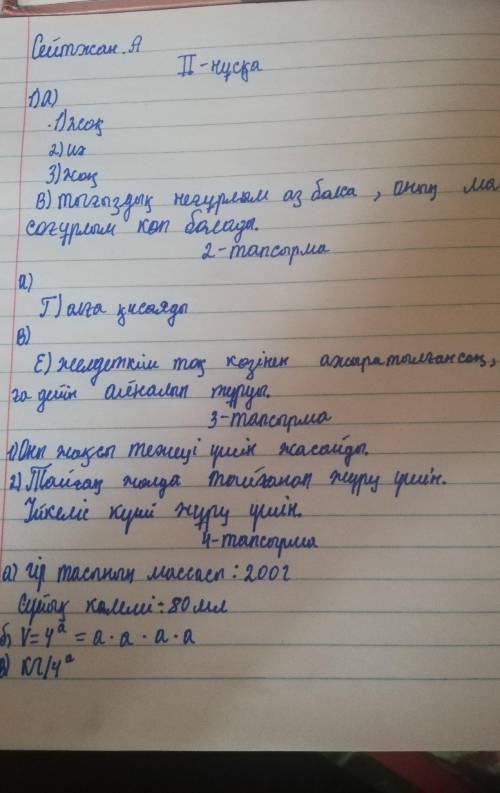 Сейтжан.А
II-нұсқа
1)а)
1)жоқ
2)иә
3)жоқ
в) тығыздық неғұрлым аз болса, оның ма
соғұрлым көп болады.
2-тапсырма
а)
Г) алға қисаяды
в)
Е) желдеткіш тоқ көзінен ажыратылғансоң,
ға дейін айналып тұруы.
3-тапсырма
1) Оны жақсы тежеуі үшін жасайды.
2) Тайғақ жолда тайғанап жүру үшін.
Үйкеліс күші жүру үшін.
4-тапсырма
а) Гір тасының массасы: 200г
Сұйық көлемі: 80мл
б) V=4ᵃ = а·а·а·а
в) КГ/4ᵃ